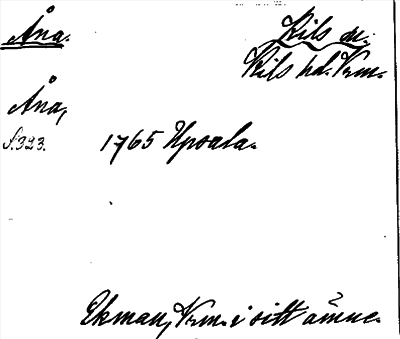 Åna.
Kils sn.
Kils hd. Vrm.
Åna,
S. 323.
1765 Upsala.
Ekman, Vrm. i sitt ämne.